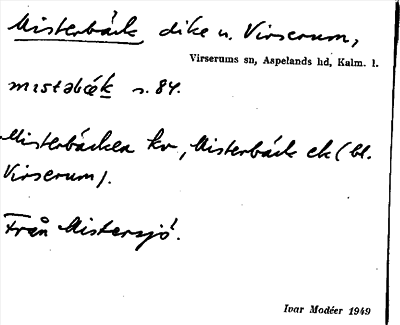 Misterbäck dike u. Virserum,
Virserums sn, Aspelands hd, Kalm. l.
mɪstəbæk s. 84.
Misterbäcken kv, Misterbäck ek (bl.
Virserum).
Från Mistersjö.
Ivar Modéer 1949